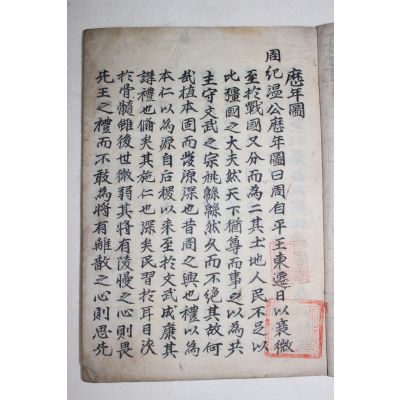 歷年圖
周紀溫公歷年圖曰周自平王東遷日以衰微
至於戰國又分而為二其土地人民不足以
比彊國之大夫然天下猶尊而事之以為共
主守文武之宗祧緜緜然久而不絕其故何
哉植本固而發源深也昔周之興也禮以為
本仁以為源自后稷以來至於文武成康其
講禮也備矣其施仁也深矣民習於耳目浹
於骨髓雖後世微弱其將有陵慢之心則畏
先王之禮而不敢為將有離散之心則思先